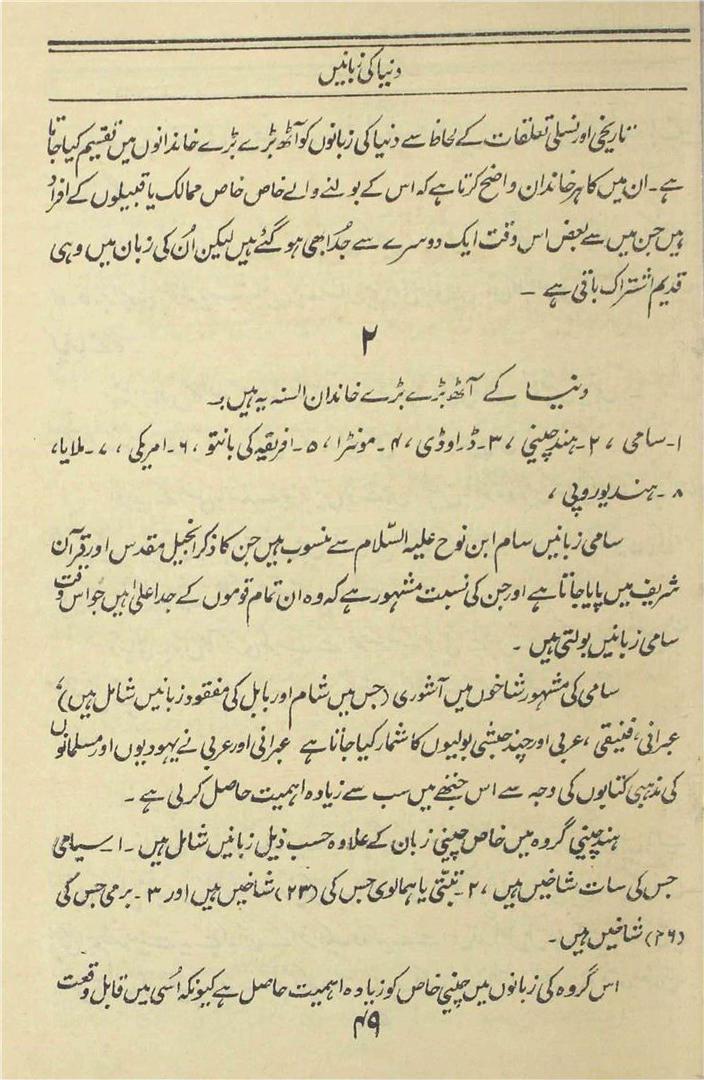 دنیا کی زبانیں
تاریخی اور نسلی تعلقات کے لحاظ سے دنیا کی زبانوں کو آٹھ بڑے بڑے خاندانوں میں تقسیم کیا جاتا
ہے۔ ان میں کا ہر خاندان واضح کرتا ہے کہ اس کے بولنے والے خاص خاص ممالک یا قبیلوں کے افراد
ہیں جن میں سے بعض اس وقت ایک دوسرے سے جُدا بھی ہو گئے ہیں لیکن اُن کی زبان میں وہی
قدیم اشتراک باقی ہے ۔
۲
دنیا کے آٹھ بڑے بڑے خاندان السنہ یہ ہیں :۔
۱۔ سامی ، ۲۔ ہند چینی ، ۳۔ ڈراوڈی ، ۴۔ مونڈا ، ۵۔ افریقہ کی بانتو ، ۶۔ امریکی ، ۷۔ ملایا،
۸۔ ہند یوروپی ،
سامی زبانیں سام ابن نوح علیہ السّلام سے منسوب ہیں جن کا ذکر انجیل مقدس اور قرآن
شریف میں پایا جاتا ہے اور جن کی نسبت مشہور ہے کہ وہ ان تمام قوموں کے جد اعلیٰ ہیں جو اس وقت
سامی زبانیں بولتی ہیں ۔
سامی کی مشہور شاخوں میں آشوری (جس میں شام اور بابل کی مفقود زبانیں شامل ہیں)،
عبرانی، فنیقی ، عربی اور چند حبشی بولیوں کا شمار کیا جاتا ہے عبرانی اور عربی نے یہودیوں اور مسلمانوں
کی مذہبی کتابوں کی وجہ سے اس جتھے میں سب سے زیادہ اہمیت حاصل کر لی ہے ۔
ہند چینی گروہ میں خاص چینی زبان کے علاوہ حسب ذیل زبانیں شامل ہیں ۔ ۱۔ سیامی
جس کی سات شاخیں ہیں ، ۲۔ تبتّی یا ہمالوی جس کی (۲۳) شاخیں ہیں اور ۳۔ برمی جس کی
(۲۶) شاخیں ہیں ۔
اس گروہ کی زبانوں میں چینی خاص کو زیادہ اہمیت حاصل ہے کیونکہ اُسی میں قابل وقعت
۴۹